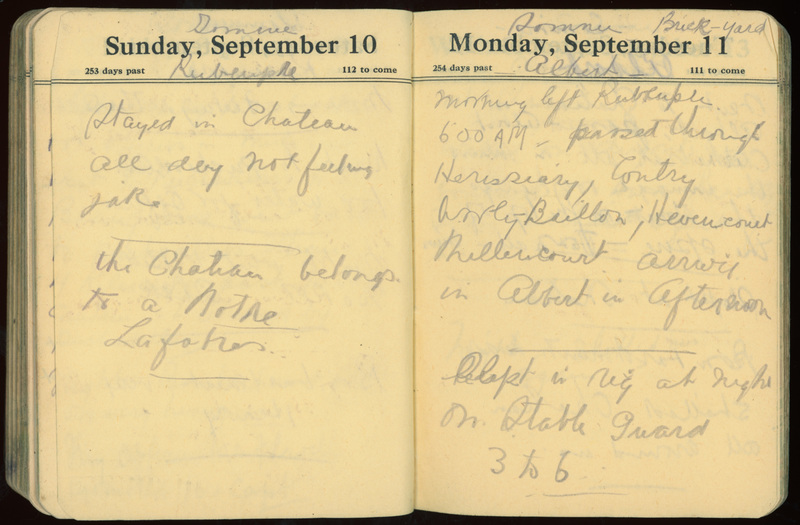 Somme
Sunday, September 10
253 days past Rubempre 112 to come
Stayed in Chateau
all day not feeling
jake
the Chateau belongs
to a Notre
Somme Brick-yard
Monday, September 11
254 days past Albert 111 to come
Morning left Rubempre.
6.00 AM - passed through
Herissiary, Contry
Warly-Baillon, Hevencourt
Millencourt arrived
in Albert in Afternoon
Slept in rig at night
On Stable Guard
3 to 6